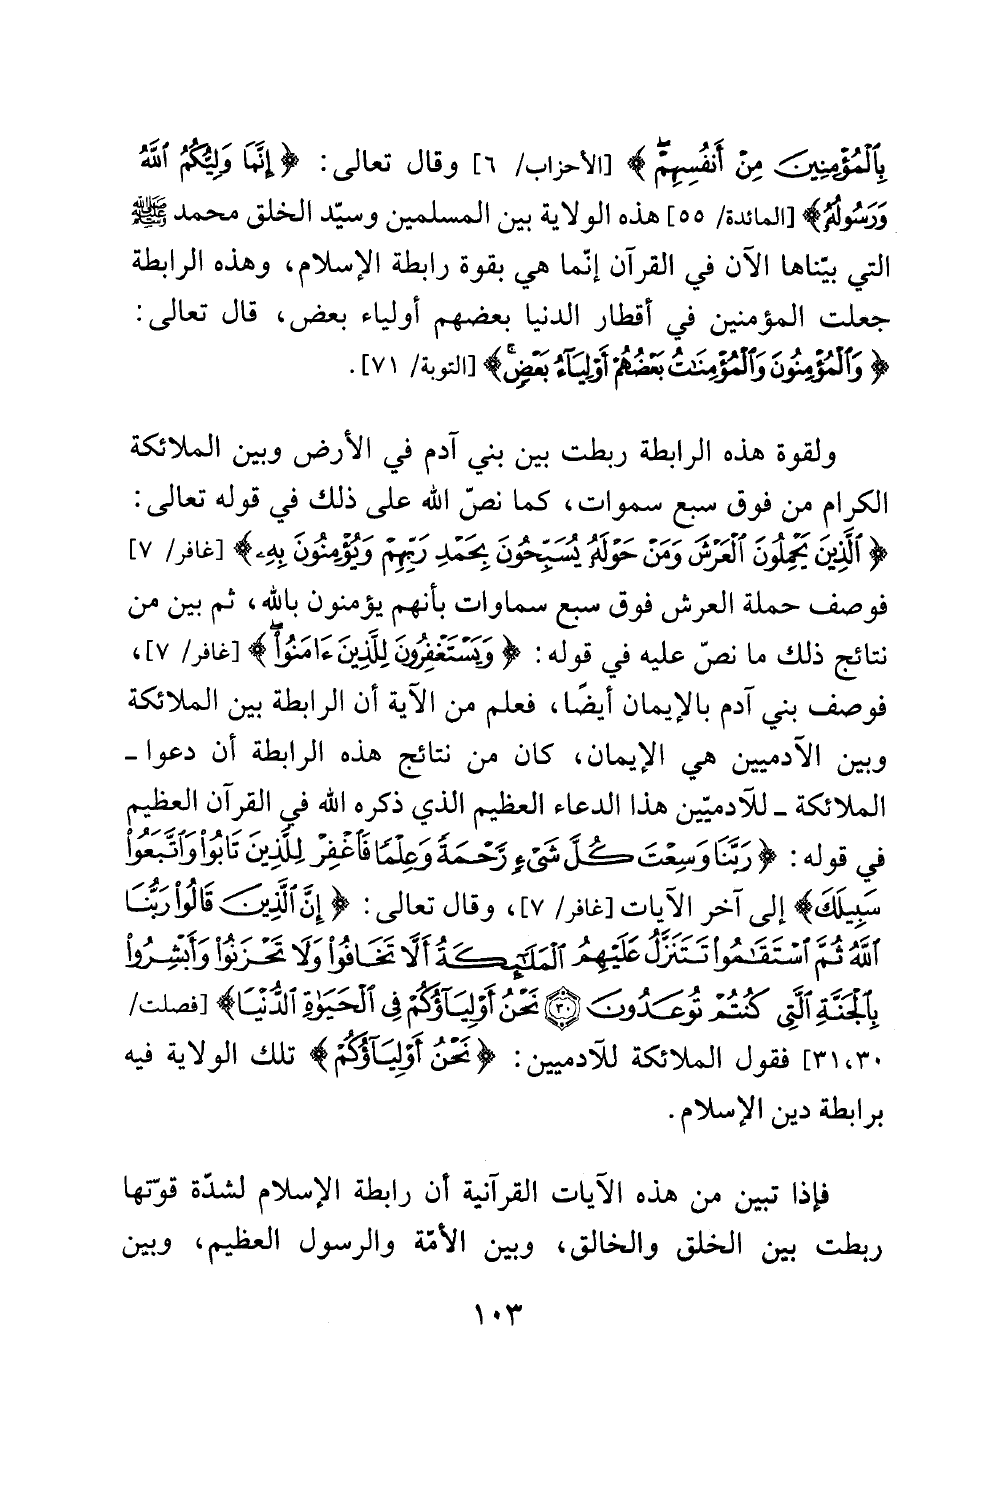 بِٱلْمُؤْمِنِينَ مِنْ أَنفُسِهِمْۖ ﴾ [الأحزاب/ ٦] وقال تعالى: ﴿ إِنَّمَا وَلِيُّكُمُ ٱللَّهُ
وَرَسُولُهُۥ﴾ [المائدة/ ٥٥] هذه الولاية بين المسلمين وسيّد الخلق محمد ﷺ
التي بيّناها الآن في القرآن إنّما هي بقوة رابطة الإسلام، وهذه الرابطة
جعلت المؤمنين في أقطار الدنيا بعضهم أولياء بعض، قال تعالى:
﴿ وَٱلْمُؤْمِنُونَ وَٱلْمُؤْمِنَٰتُ بَعْضُهُمْ أَوْلِيَآءُ بَعْضٍۚ﴾ [التوبة/ ٧١].
ولقوة هذه الرابطة ربطت بين بني آدم في الأرض وبين الملائكة
الكرام من فوق سبع سموات، كما نصّ الله على ذلك في قوله تعالى:
﴿ ٱلَّذِينَ يَحْمِلُونَ ٱلْعَرْشَ وَمَنْ حَوْلَهُۥ يُسَبِّحُونَ بِحَمْدِ رَبِّهِمْ وَيُؤْمِنُونَ بِهِۦ﴾ [غافر/ ٧]
فوصف حملة العرش فوق سبع سماوات بأنهم يؤمنون بالله، ثم بين من
نتائج ذلك ما نصّ عليه في قوله: ﴿ وَيَسْتَغْفِرُونَ لِلَّذِينَ ءَامَنُوا۟ۖ ﴾ [غافر/ ٧]،
فوصف بني آدم بالإيمان أيضًا، فعلم من الآية أن الرابطة بين الملائكة
وبين الآدميين هي الإيمان، كان من نتائج هذه الرابطة أن دعوا -
الملائكة - للآدميّين هذا الدعاء العظيم الذي ذكره الله في القرآن العظيم
في قوله: ﴿ رَبَّنَا وَسِعْتَ كُلَّ شَىْءٍ رَّحْمَةً وَعِلْمًا فَٱغْفِرْ لِلَّذِينَ تَابُوا۟ وَٱتَّبَعُوا۟
سَبِيلَكَ﴾ إلى آخر الآيات [غافر/ ٧]، وقال تعالى: ﴿ إِنَّ ٱلَّذِينَ قَالُوا۟ رَبُّنَا
ٱللَّهُ ثُمَّ ٱسْتَقَٰمُوا۟ تَتَنَزَّلُ عَلَيْهِمُ ٱلْمَلَٰٓئِكَةُ أَلَّا تَخَافُوا۟ وَلَا تَحْزَنُوا۟ وَأَبْشِرُوا۟
بِٱلْجَنَّةِ ٱلَّتِى كُنتُمْ تُوعَدُونَ ٣٠ نَحْنُ أَوْلِيَآؤُكُمْ فِى ٱلْحَيَوٰةِ ٱلدُّنْيَا﴾ [فصلت/
٣٠،٣١] فقول الملائكة للآدميين: ﴿ نَحْنُ أَوْلِيَآؤُكُمْ﴾ تلك الولاية فيه
برابطة دين الإسلام.
فإذا تبين من هذه الآيات القرآنية أن رابطة الإسلام لشدّة قوّتها
ربطت بين الخلق والخالق، وبين الأمّة والرسول العظيم، وبين
١٠٣